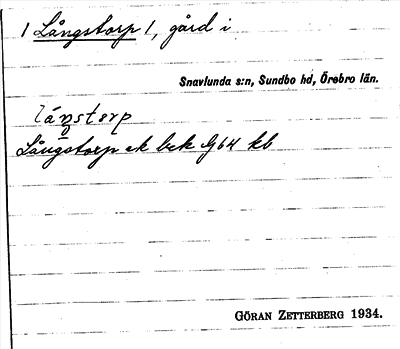 1 Långstorp 1, gård i
Snavlunda s:n, Sundbo hd, Örebro län.
låŋstɐrp
Långstorp ek bek G64 kb
GÖRAN ZETTERBERG 1934.